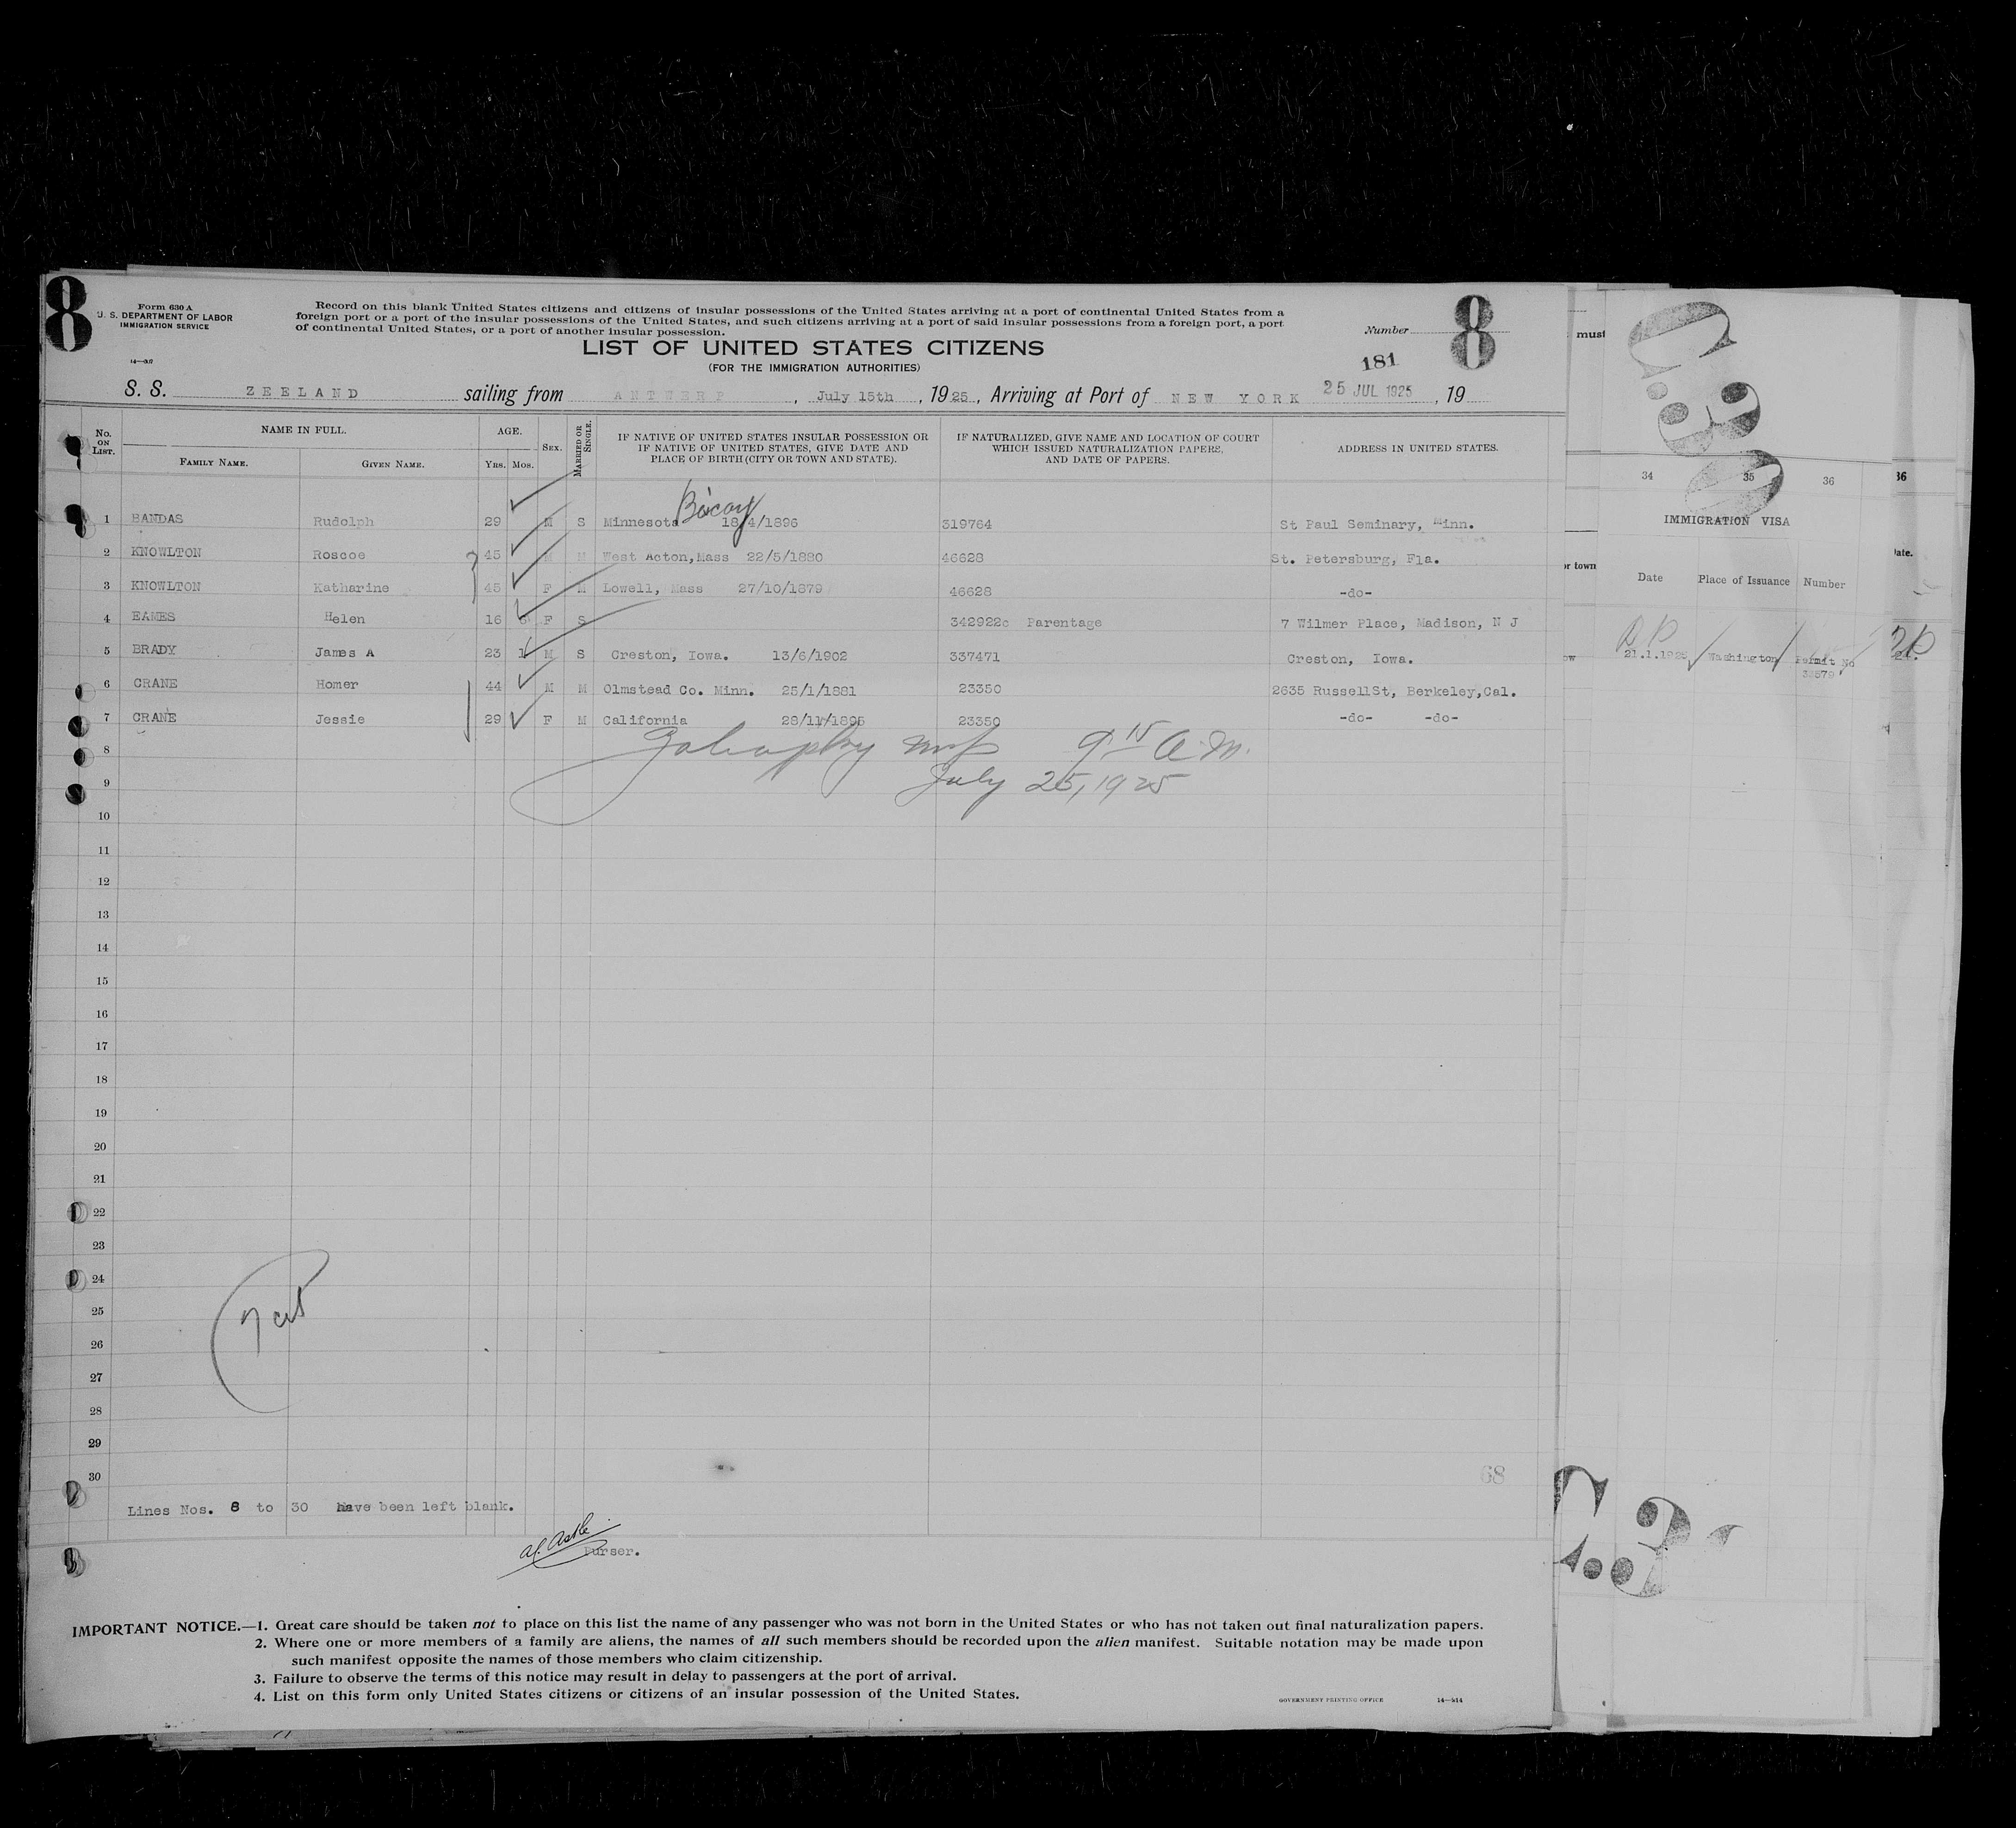 8
Form 630 A
U. S. DEPARTMENT OF LABOR
IMMIGRATION SERVICE
Record on this blank United States citizens and citizens of insular possessions of the United States arriving at a port of continental United States from a
foreign port or a port of the insular possessions of the United States, and such citizens arriving at a port of said insular possessions from a foreign port, a port
of continental United States, or a port of another insular possession.
Number
8
LIST OF UNITED STATES CITIZENS
(FOR THE IMMIGRATION AUTHORITIES)
181
S. S. ZEELAND sailing from ANTWERP, July 15th, 1925, Arriving at Port of NEW YORK 25 JUL 1925, 19
No. ON LIST.
NAME IN FULL.
FAMILY NAME. GIVEN NAME.
AGE.
YRS. MOS.
SEX.
MARRIED OR SINGLE.
IF NATIVE OF UNITED STATES INSULAR POSSESSION OR
IF NATIVE OF UNITED STATES, GIVE DATE AND
PLACE OF BIRTH (CITY OR TOWN AND STATE).
IF NATURALIZED, GIVE NAME AND LOCATION OF COURT
WHICH ISSUED NATURALIZATION PAPERS,
AND DATE OF PAPERS.
ADDRESS IN UNITED STATES.
1 BANDAS Rudolph 29 M S Minnesota 18/4/1896 319764 St Paul Seminary, Minn.
2 KNOWLTON Roscoe 45 M M West Acton,Mass 22/5/1880 46628 St. Petersburg, Fla.
3 KNOWLTON Katharine 45 F M Lowell, Mass 27/10/1879 46628 -do-
4 EAMES Helen 16 F S 342922c Parentage 7 Wilmer Place, Madison, N J
5 BRADY James A 23 1 M S Creston, Iowa. 13/6/1902 337471 Creston, Iowa.
6 CRANE Homer 44 M M Olmstead Co. Minn. 25/1/1881 23350 2635 RussellSt, Berkeley,Cal.
7 CRANE Jessie 29 F M California 28/11/1895 23350 -do- -do-
8 9 15 A.M.
9 July 25, 1925
10
11
12
13
14
15
16
17
18
19
20
21
22
23
24
25
26
27
28
29
30
68
Lines Nos. 8 to 30 have been left blank.
Purser.
IMPORTANT NOTICE.—1. Great care should be taken not to place on this list the name of any passenger who was not born in the United States or who has not taken out final naturalization papers.
2. Where one or more members of a family are aliens, the names of all such members should be recorded upon the alien manifest. Suitable notation may be made upon
such manifest opposite the names of those members who claim citizenship.
3. Failure to observe the terms of this notice may result in delay to passengers at the port of arrival.
4. List on this form only United States citizens or citizens of an insular possession of the United States.
GOVERNMENT PRINTING OFFICE
must
34 35 36
36
IMMIGRATION VISA
Date.
or town
Date Place of Issuance Number
21.1.1925 Washington Permit No